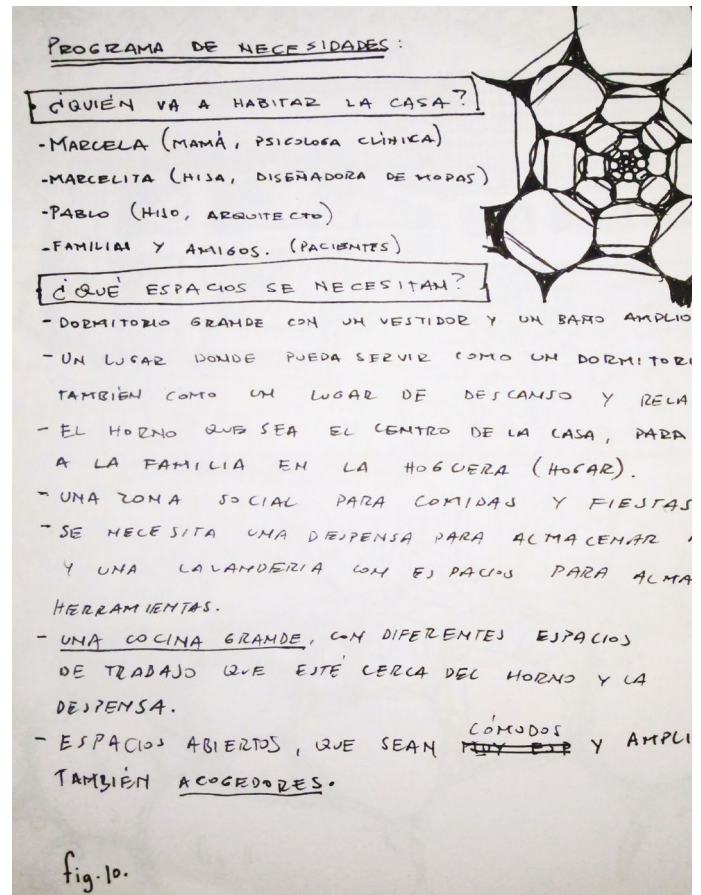 PROGRAMA DE NECESIDADES:
¿QUIÉN VA A HABITAR LA CASA?
-MARCELA (MAMÁ, PSICOLOGA CLÍNICA)
-MARCELITA (HIJA, DISEÑADORA DE MODAS)
-PABLO (HIJO, ARQUITECTO)
-FAMILIAS Y AMIGOS. (PACIENTES)
¿QUÉ ESPACIOS SE NECESITAN?
- DORMITORIO GRANDE CON UN VESTIDOR Y UN BAÑO AMPLIO
- UN LUGAR DONDE PUEDA SERVIR COMO UN DORMITORI
TAMBIÉN COMO UN LUGAR DE DESCANSO Y RELA
- EL HORNO QUE SEA EL CENTRO DE LA CASA, PARA
A LA FAMILIA EN LA HOGUERA (HOGAR).
- UNA ZONA SOCIAL PARA COMIDAS Y FIESTAS
- SE NECESITA UNA DESPENSA PARA ALMACENAR
Y UNA LAVANDERIA CON ESPACIOS PARA ALMA
HERRAMIENTAS.
- UNA COCINA GRANDE, CON DIFERENTES ESPACIOS
DE TRABAJO QUE ESTÉ CERCA DEL HORNO Y LA
DESPENSA.
- ESPACIOS ABIERTOS, QUE SEAN CÓMODOS Y AMPLI
TAMBIÉN ACOGEDORES.
fig.10.